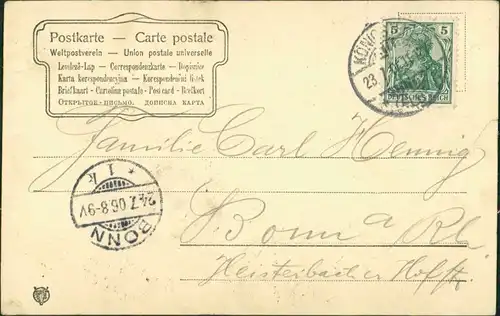 Postkarte — Carte postale
Weltpostverein — Union postale universelle
Levelező-Lap — Correspondenzkarte — Dopisnice
Karta korespondencyjna — Korespondenční lístek
Briefkaart — Cartolina postale — Post card — Brefkort
ОТКРЫТОЕ-ПИСЬМО. ДОПИСНА КАРТА
5 5
DEUTSCHES REICH
KÖNIG
23.
Familie Carl Hennig
* 1 k
24.7.06.8-9V
BONN
Bonn a Rh
Heisterbacher Hofstr.